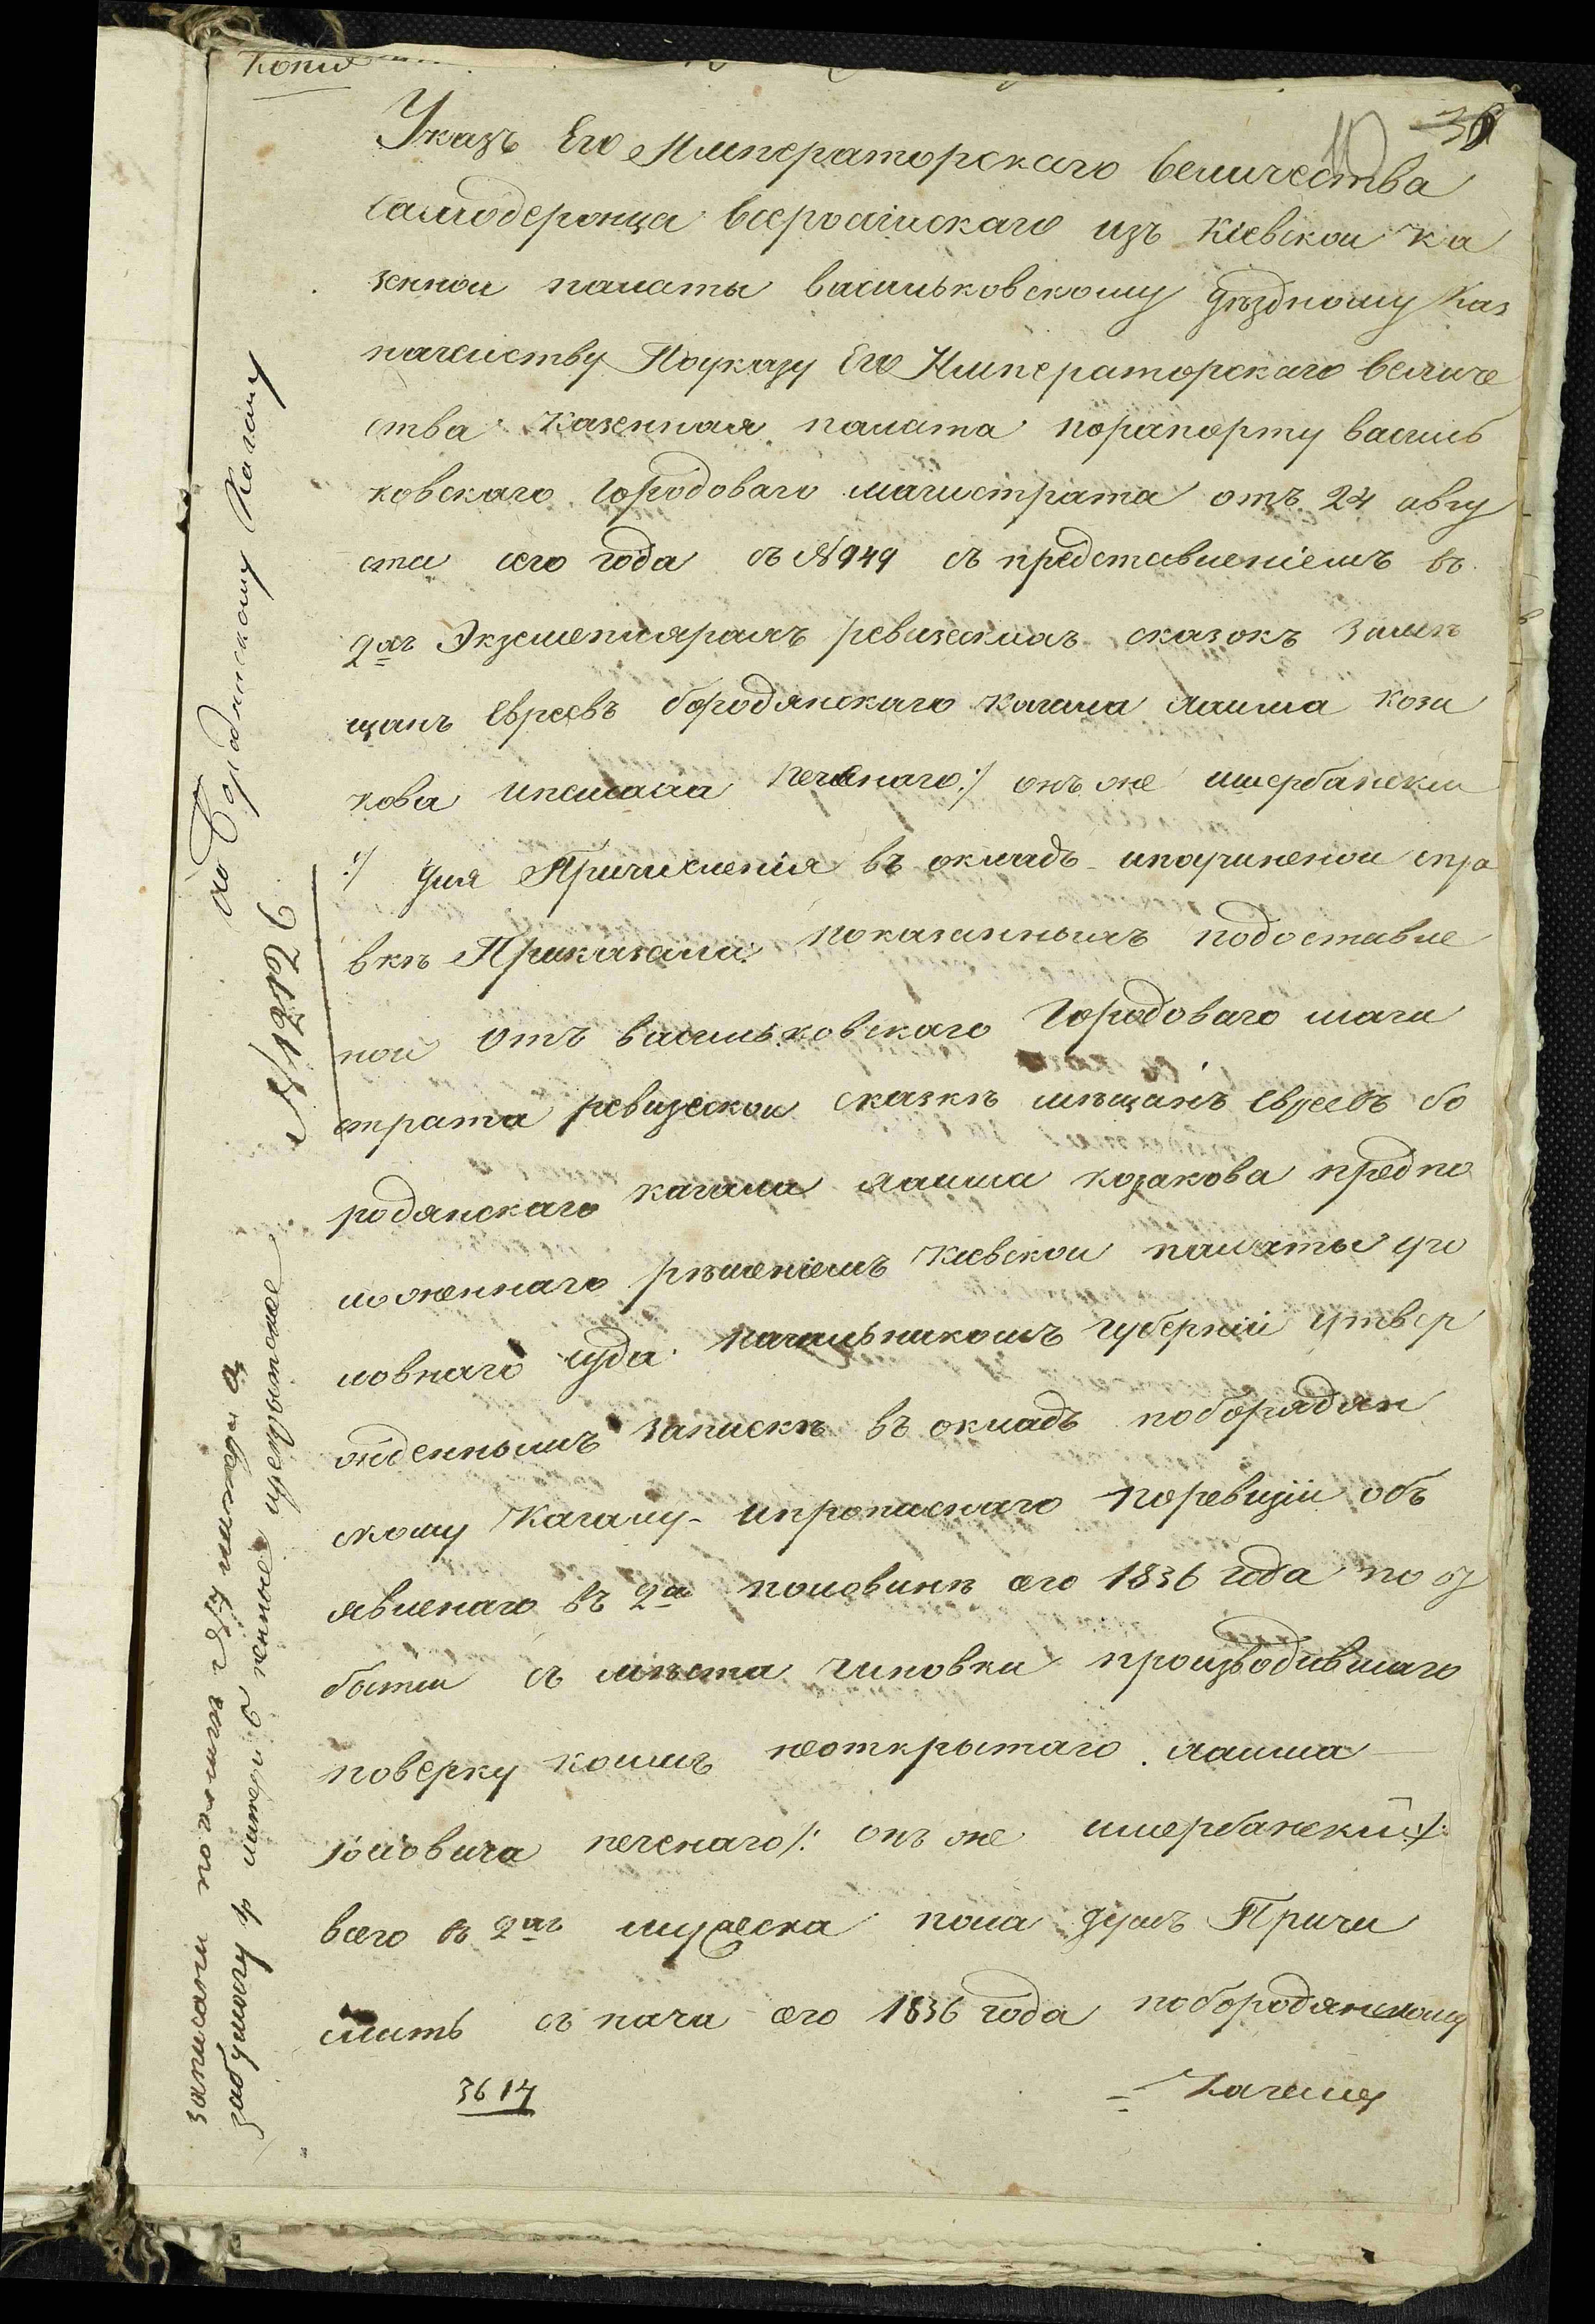 Копия
36
10
Указъ Его Императорскаго Величества
Самодержца Всеросійскаго изъ Кіевской Ка
зенной палаты Васильковскому Уѣздному Каз
начейству По указу Его Императорскаго Величе
ства Казенная палата порапорту Василь
ковскаго Городоваго магистрата отъ 24 авгу
ста сего года съ №949 съ представленіемъ въ
2хъ Экземплярахъ ревизскихъ сказокъ
щанъ Евреевъ бородянскаго Кагала Хаима Коза
кова печенаго :/ онъ же Щербанскій
:/ для Причисленія въ окладъ ипоучиненой спра
вкѣ Приказала: показаннымъ подоставле
ной отъ Васильковскаго Городоваго маги
страта ревизской сказкѣ мѣщанъ Евреевъ бо
родянскаго кагала Хаима козакова предпо
ложеннаго рѣшеніемъ Кіевской палаты уго
ловнаго суда Начальникомъ губерніи утвер
жденнымъ запискѣ въ окладъ побородян
скому Кагалу - ипрописнаго поревизіи объ
явленаго въ 2й половинѣ сего 1836 года по
бытіи съ мѣста чиновни производившаго
поверку коимъ неоткрытаго Хаима
печенаго /: онъ же Щербанскій :/
всего въ 2хъ мужеска пола душъ Причи
слить съ нача сего 1836 года побородянскому
3614
Кагалу
по Бородянскому Кагалу
№12726
записани по книгѣ